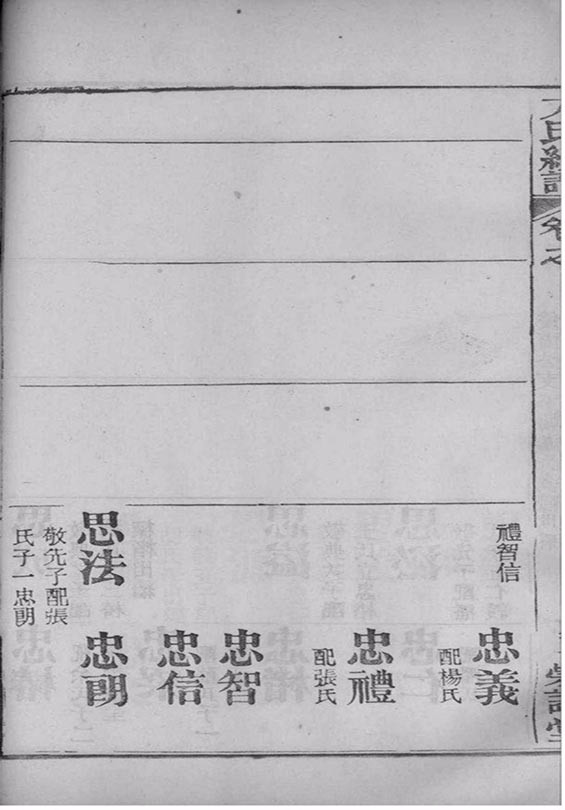 氏
卷之
禮智信
忠義
配楊氏
忠禮
配張氏
忠智
忠信
思法
敬先子配張
氏子一忠朗
忠朗